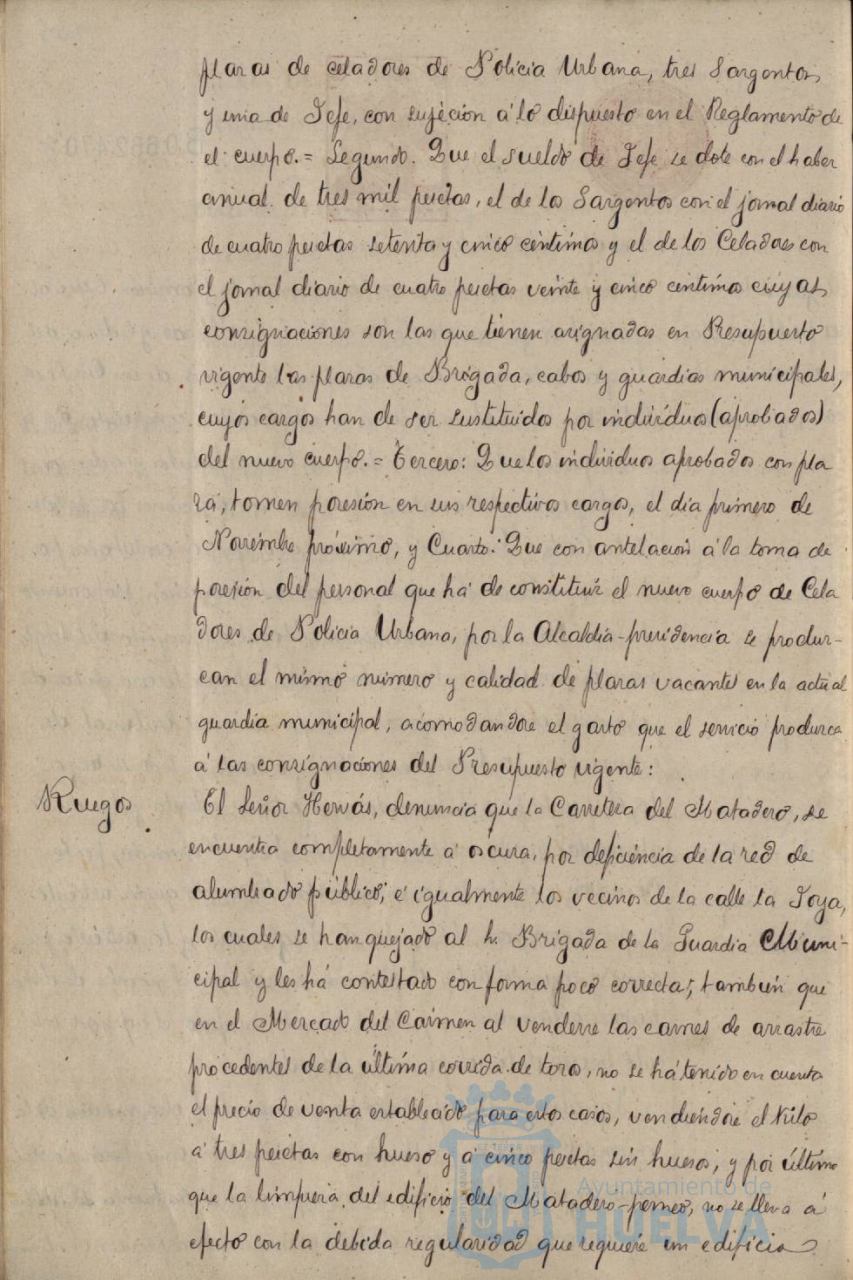 plazas de celadores de Policía Urbana, tres Sargentos,
y una de Jefe, con sujeción á lo dispuesto en el Reglamento de
el cuerpo.= Segundo. Que el sueldo de Jefe se dote con el haber
anual de tres mil pesetas, el de los Sargentos con el jornal diario
de cuatro pesetas setenta y cinco céntimos y el de los Celadores con
el jornal diario de cuatro pesetas veinte y cinco centimos cuyas,
consignaciones son las que tienen asignadas en Presupuesto
vigente las plazas de Brigada, cabos y guardias municipales,
cuyos cargos han de ser sustituidos por individuos (aprobados)
del nuevo cuerpo.= Tercero: Que los individuos aprobados con pla
za, tomen posesión en sus respectivos cargos, el día primero de
Noviembre próximo, y Cuarto: Que con antelación á la toma de
posesión del personal que há de constituir el nuevo cuerpo de Cela
dores de Policía Urbana, por la Alcaldía-presidencia se produz-
can el mismo número y calidad de plazas vacantes en la actual
guardia municipal, acomodandose el gasto que el servicio produzca
á las consignaciones del Presupuesto vigente:
Ruegos
El Señor Hervás, denuncia que la Carretera del Matadero, se
encuentra completamente á oscura, por deficiencia de la red de
alumbrado público; é igualmente los vecinos de la calle la Joya,
los cuales se han quejado al h. Brigada de la Guardia Muni-
cipal y les há contestado con forma poco correcta; también que
en el Mercado del Carmen al venderse las carnes de arrastre
procedentes de la última corrida de toros, no se há tenido en cuenta
el precio de venta establecido para estos casos, vendiendose el Kilo
á tres pesetas con hueso y á cinco pesetas sin hueso, y por último
que la limpieza del edificio del Matadero-perneo, no se lleva á
efecto con la debida regularidad que requiere un edificio
Ayuntamiento de
HUELVA